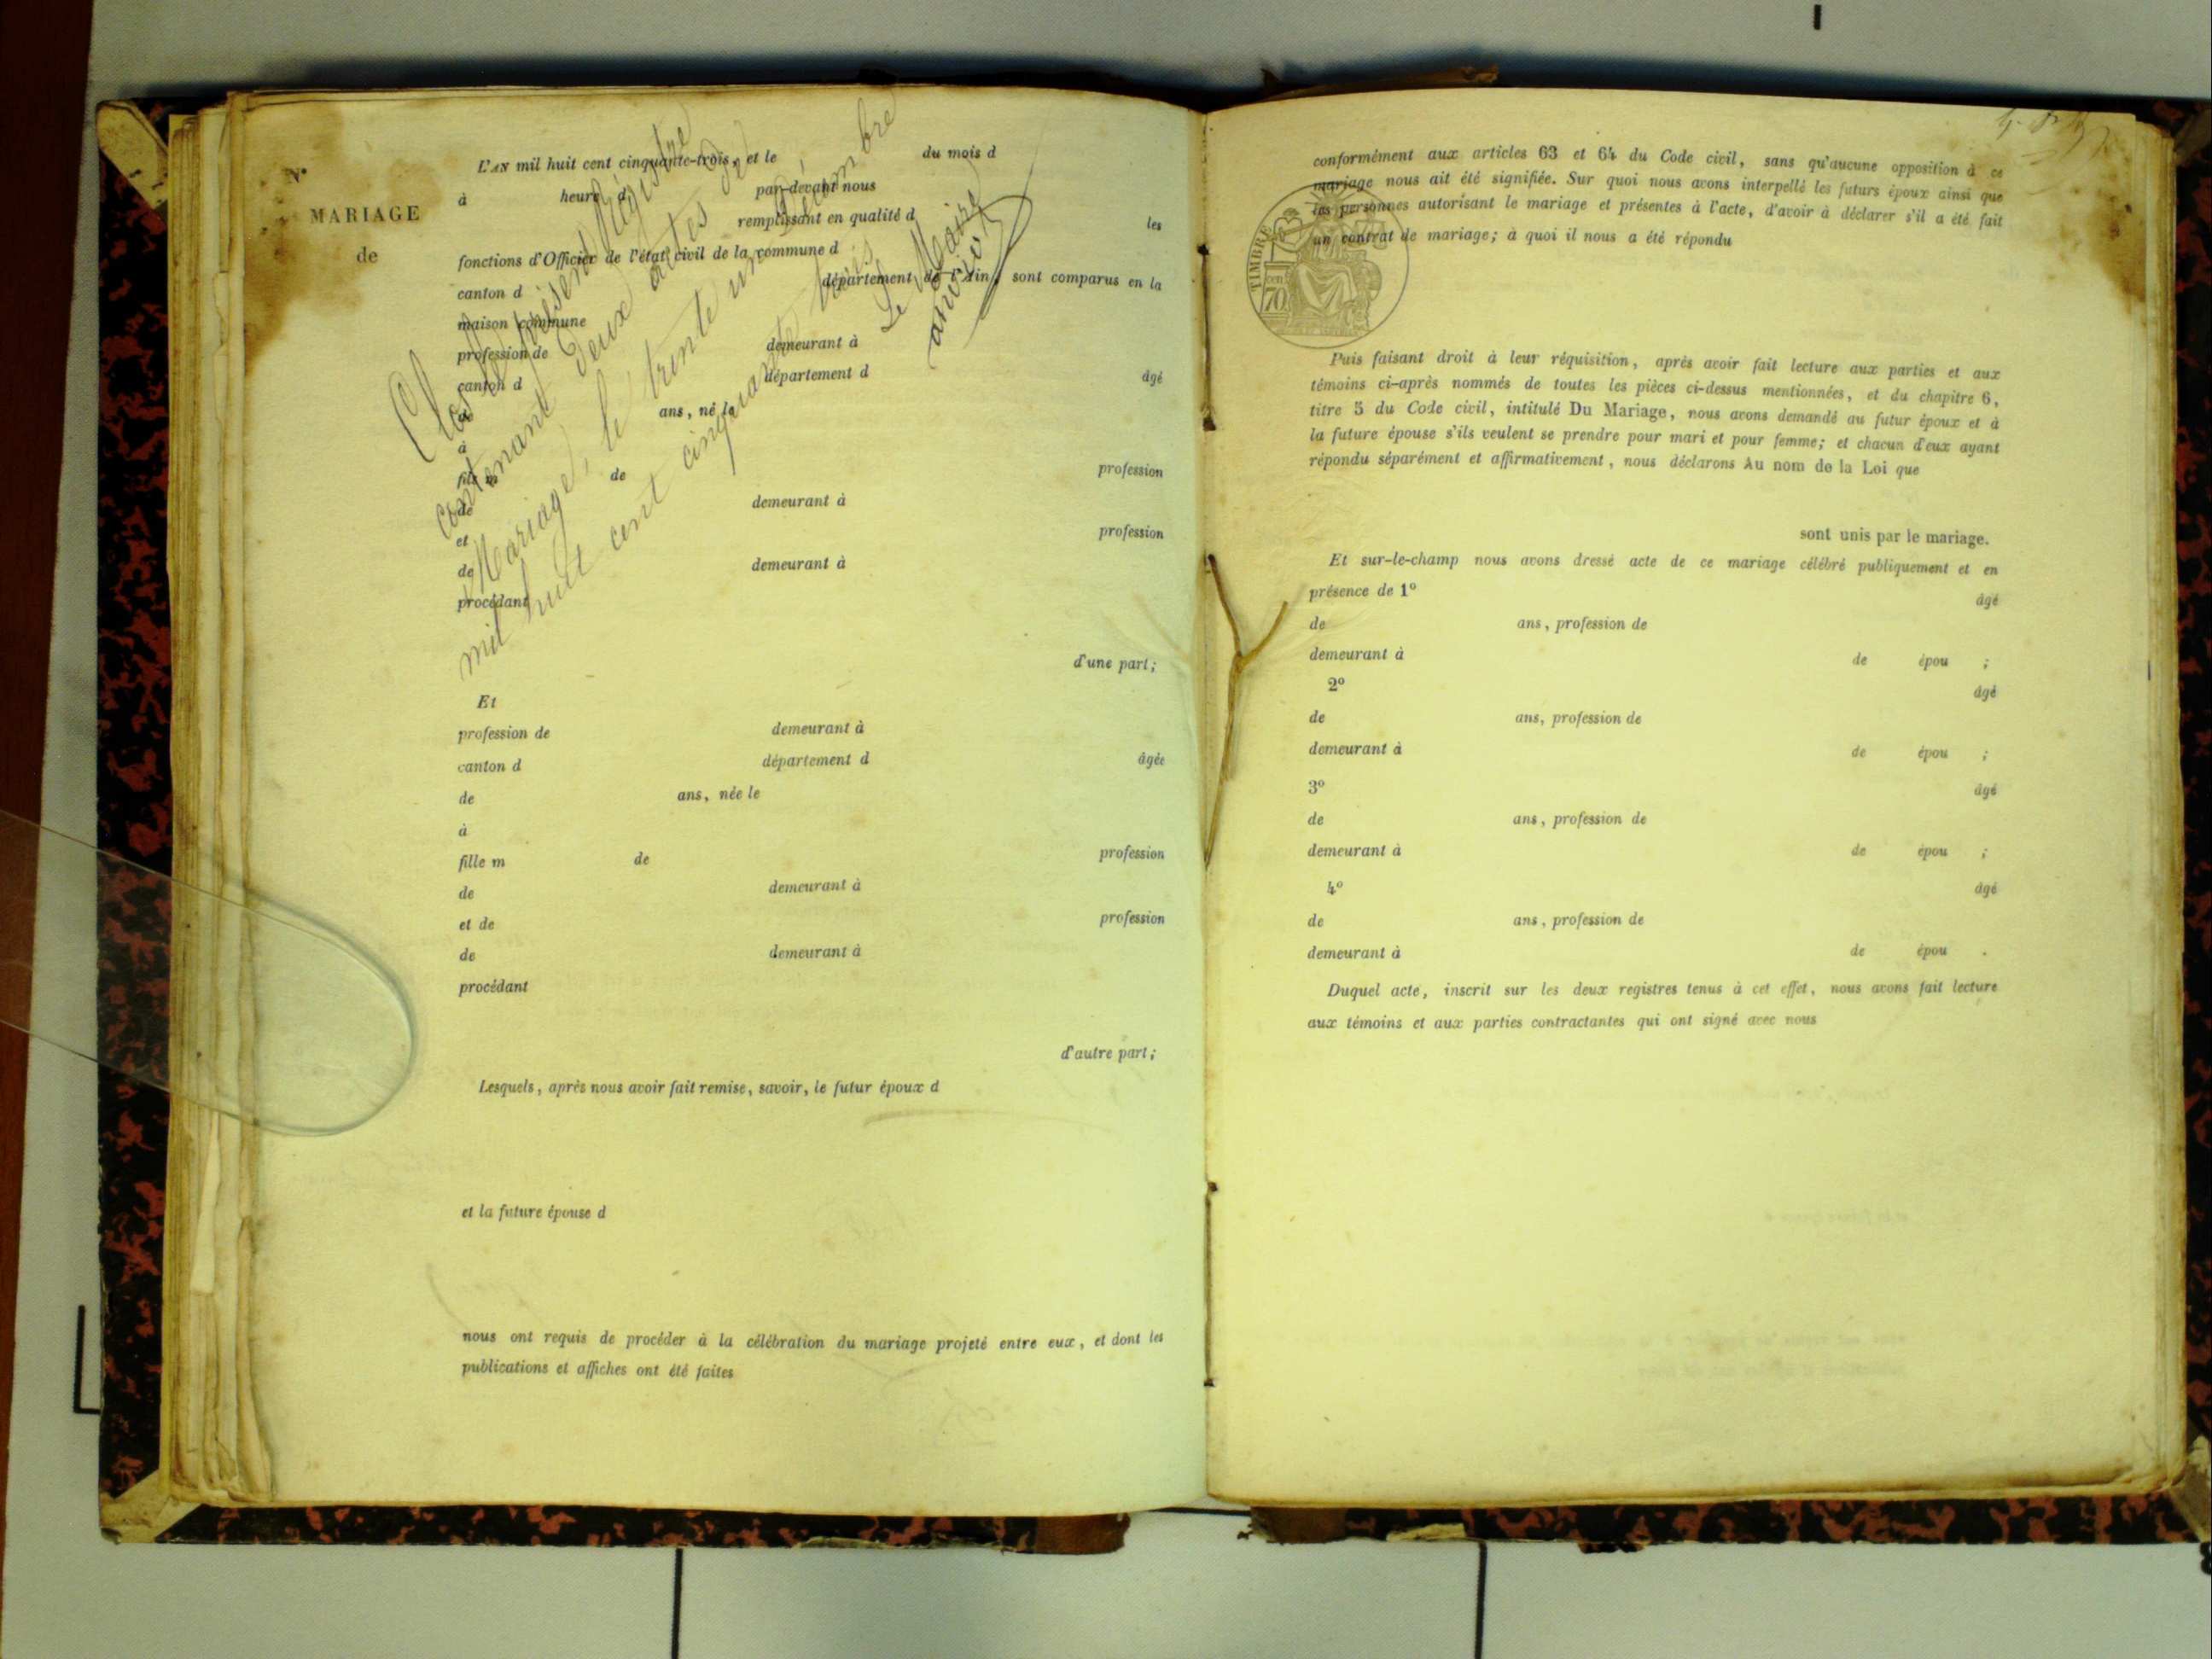 N°
MARIAGE
de
L'AN mil huit cent cinquante-trois, et le du mois d
à heure d par-devant nous
remplissant en qualité d les
fonctions d'Officier de l'état civil de la commune d
canton d département de l'Ain, sont comparus en la
maison commune
profession de demeurant à
canton d département d âgé
de ans, né le
à
fils m de profession
de demeurant à
et profession
de demeurant à
procédant
d'une part;
Et
profession de demeurant à
canton d département d âgée
de ans, née le
à
fille m de profession
de demeurant à
et de profession
de demeurant à
procédant
d'autre part;
Lesquels, après nous avoir fait remise, savoir, le futur époux d
et la future épouse d
nous ont requis de procéder à la célébration du mariage projeté entre eux, et dont les
publications et affiches ont été faites
Clos le présent Registre
contenant deux actes de
Mariage, le trente un Décembre
mil huit cent cinquante trois
Le Maire
conformément aux articles 63 et 64 du Code civil, sans qu'aucune opposition à ce
mariage nous ait été signifiée. Sur quoi nous avons interpellé les futurs époux ainsi que
les personnes autorisant le mariage et présentes à l'acte, d'avoir à déclarer s'il a été fait
un contrat de mariage; à quoi il nous a été répondu
TIMBRE
70
Puis faisant droit à leur réquisition, après avoir fait lecture aux parties et aux
témoins ci-après nommés de toutes les pièces ci-dessus mentionnées, et du chapitre 6,
titre 5 du Code civil, intitulé Du Mariage, nous avons demandé au futur époux et à
la future épouse s'ils veulent se prendre pour mari et pour femme; et chacun d'eux ayant
répondu séparément et affirmativement, nous déclarons Au nom de la Loi que
sont unis par le mariage.
Et sur-le-champ nous avons dressé acte de ce mariage célébré publiquement et en
présence de 1° âgé
de ans, profession de
demeurant à de épou ;
2° âgé
de ans, profession de
demeurant à de épou ;
3° âgé
de ans, profession de
demeurant à de épou ;
4° âgé
de ans, profession de
demeurant à de épou .
Duquel acte, inscrit sur les deux registres tenus à cet effet, nous avons fait lecture
aux témoins et aux parties contractantes qui ont signé avec nous